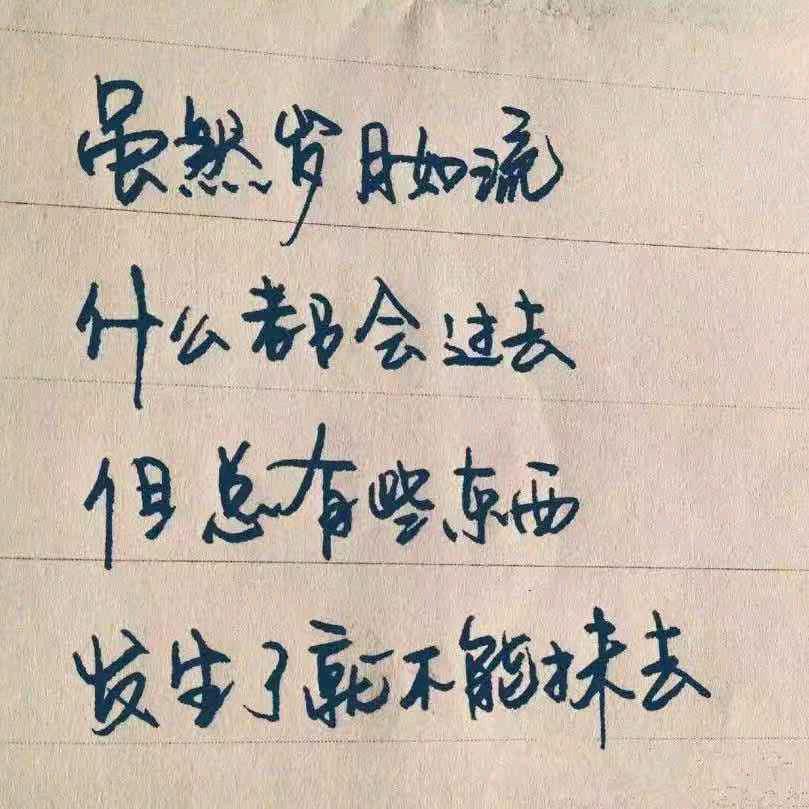 虽然岁月如流
什么都会过去
但总有些东西
发生了就不能抹去